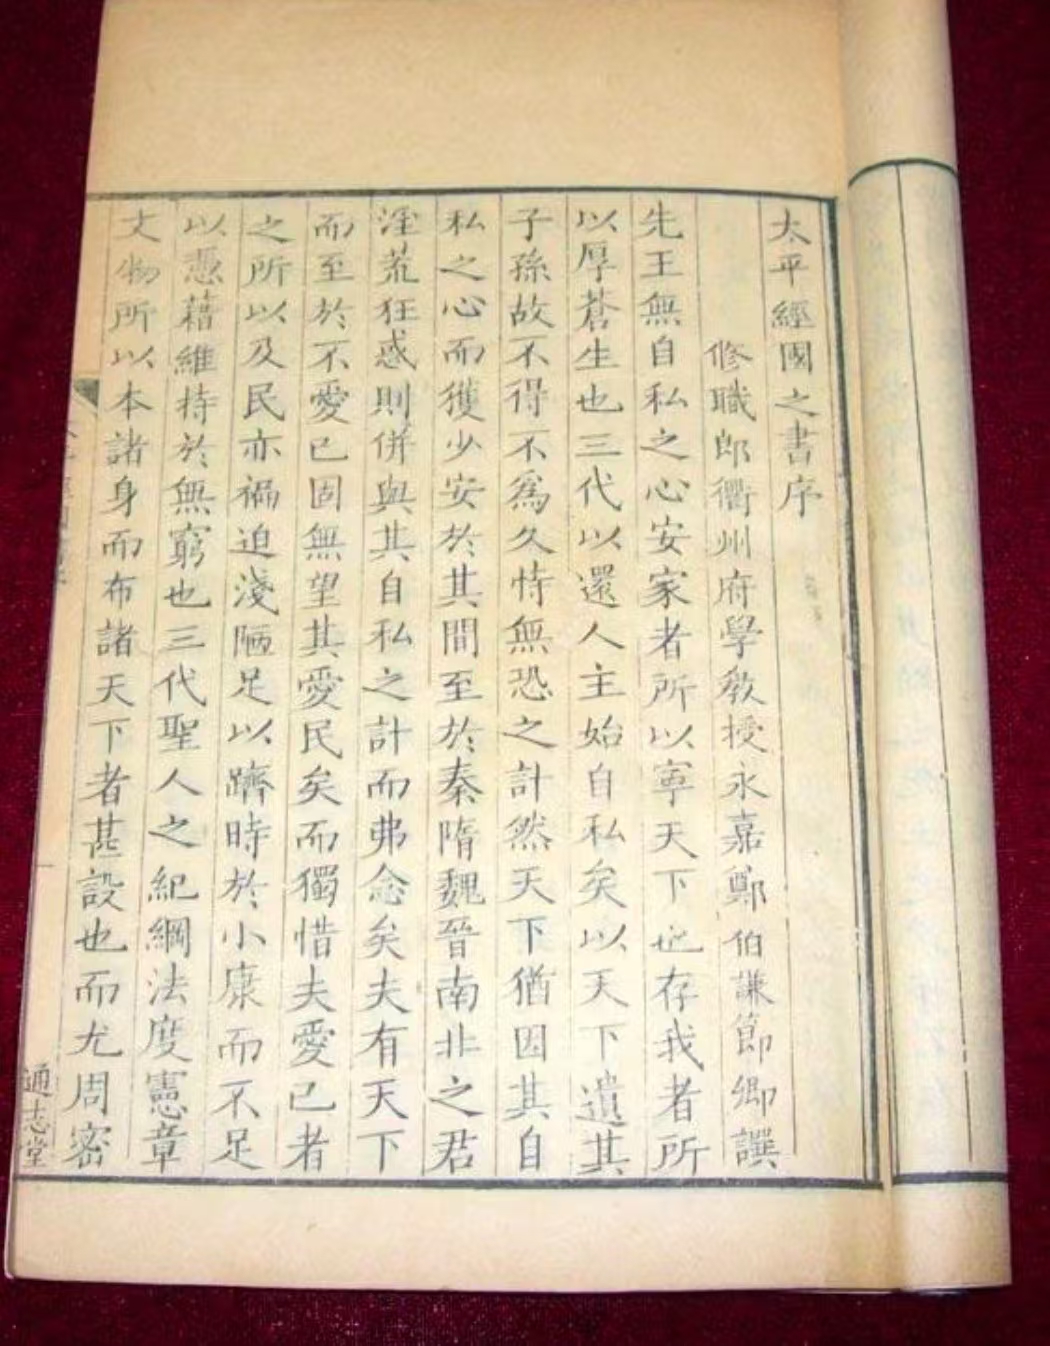 太平經國之書序
修職郎衢州府學敎授永嘉鄭伯謙節卿譔
先王無自私之心安家者所以寧天下也存我者所
以厚蒼生也三代以還人主始自私矣以天下遺其
子孫故不得不爲久恃無恐之計然天下猶因其自
私之心而獲少安於其間至於秦隋魏晉南北之君
淫荒狂惑則併與其自私之計而弗念矣夫有天下
而至於不愛已固無望其愛民矣而獨惜夫愛已者
之所以及民亦褊迫淺陋足以躋時於小康而不足
以憑藉維持於無窮也三代聖人之紀綱法度憲章
文物所以本諸身而布諸天下者甚設也而尤周密
通志堂